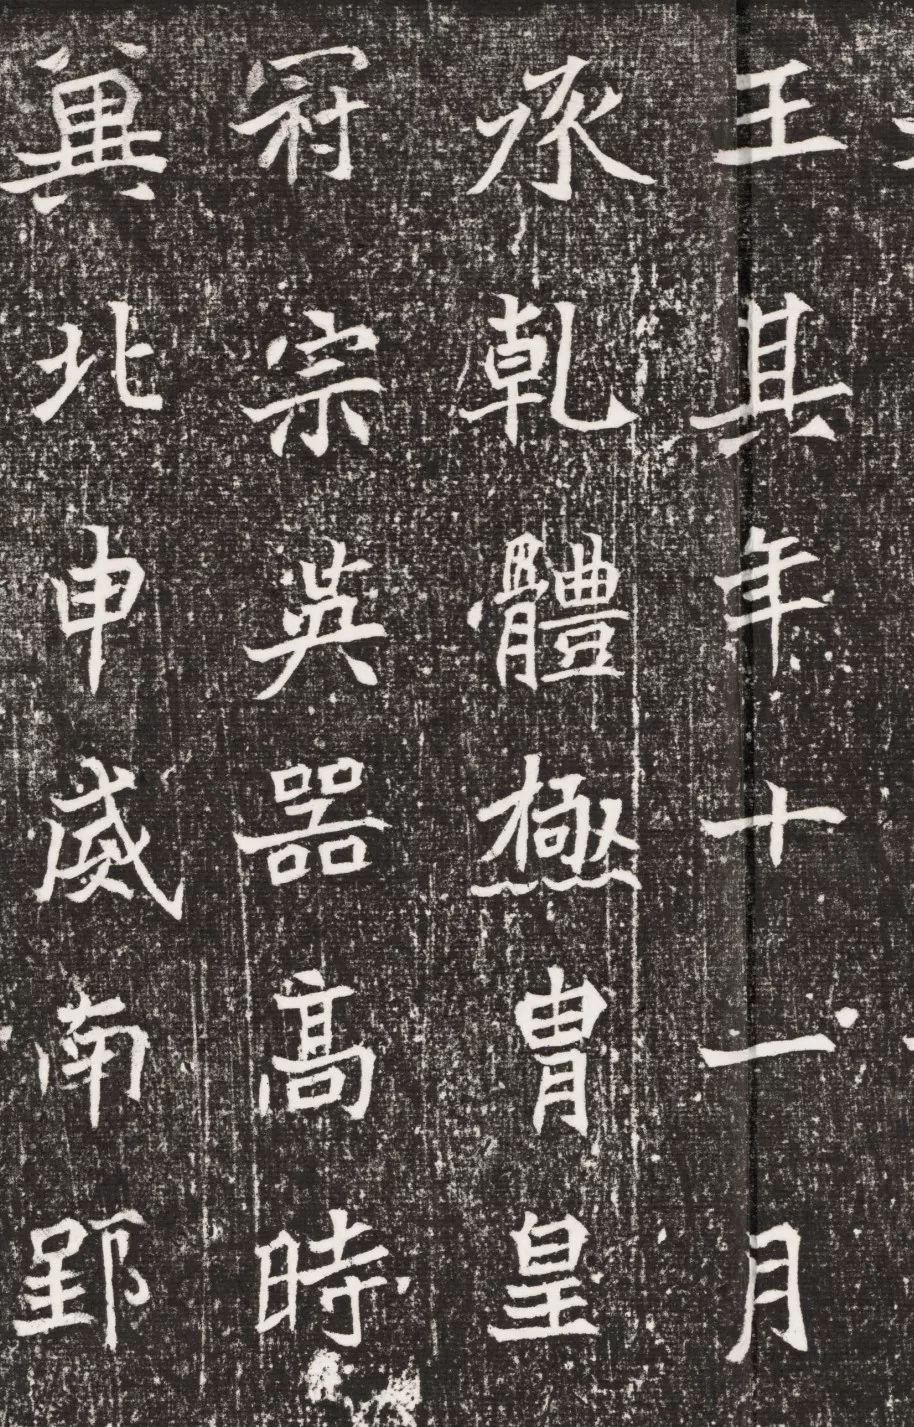 王其年十一月
承乾體極胄皇
冠宗英器高時
冀北申威南郢